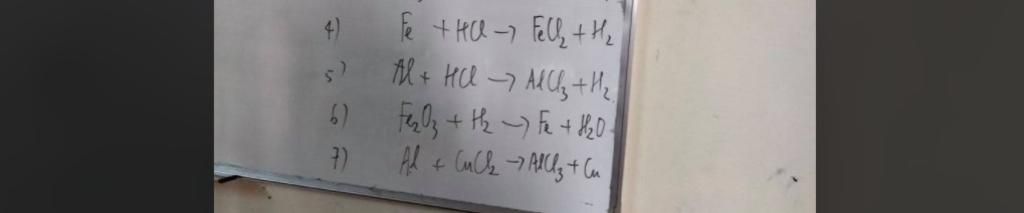 4) Fe + HCl → FeCl₂ + H₂
5) Al + HCl → AlCl₃ + H₂
6) Fe₂O₃ + H₂ → Fe + H₂O
7) Al + CuCl₂ → AlCl₃ + Cu